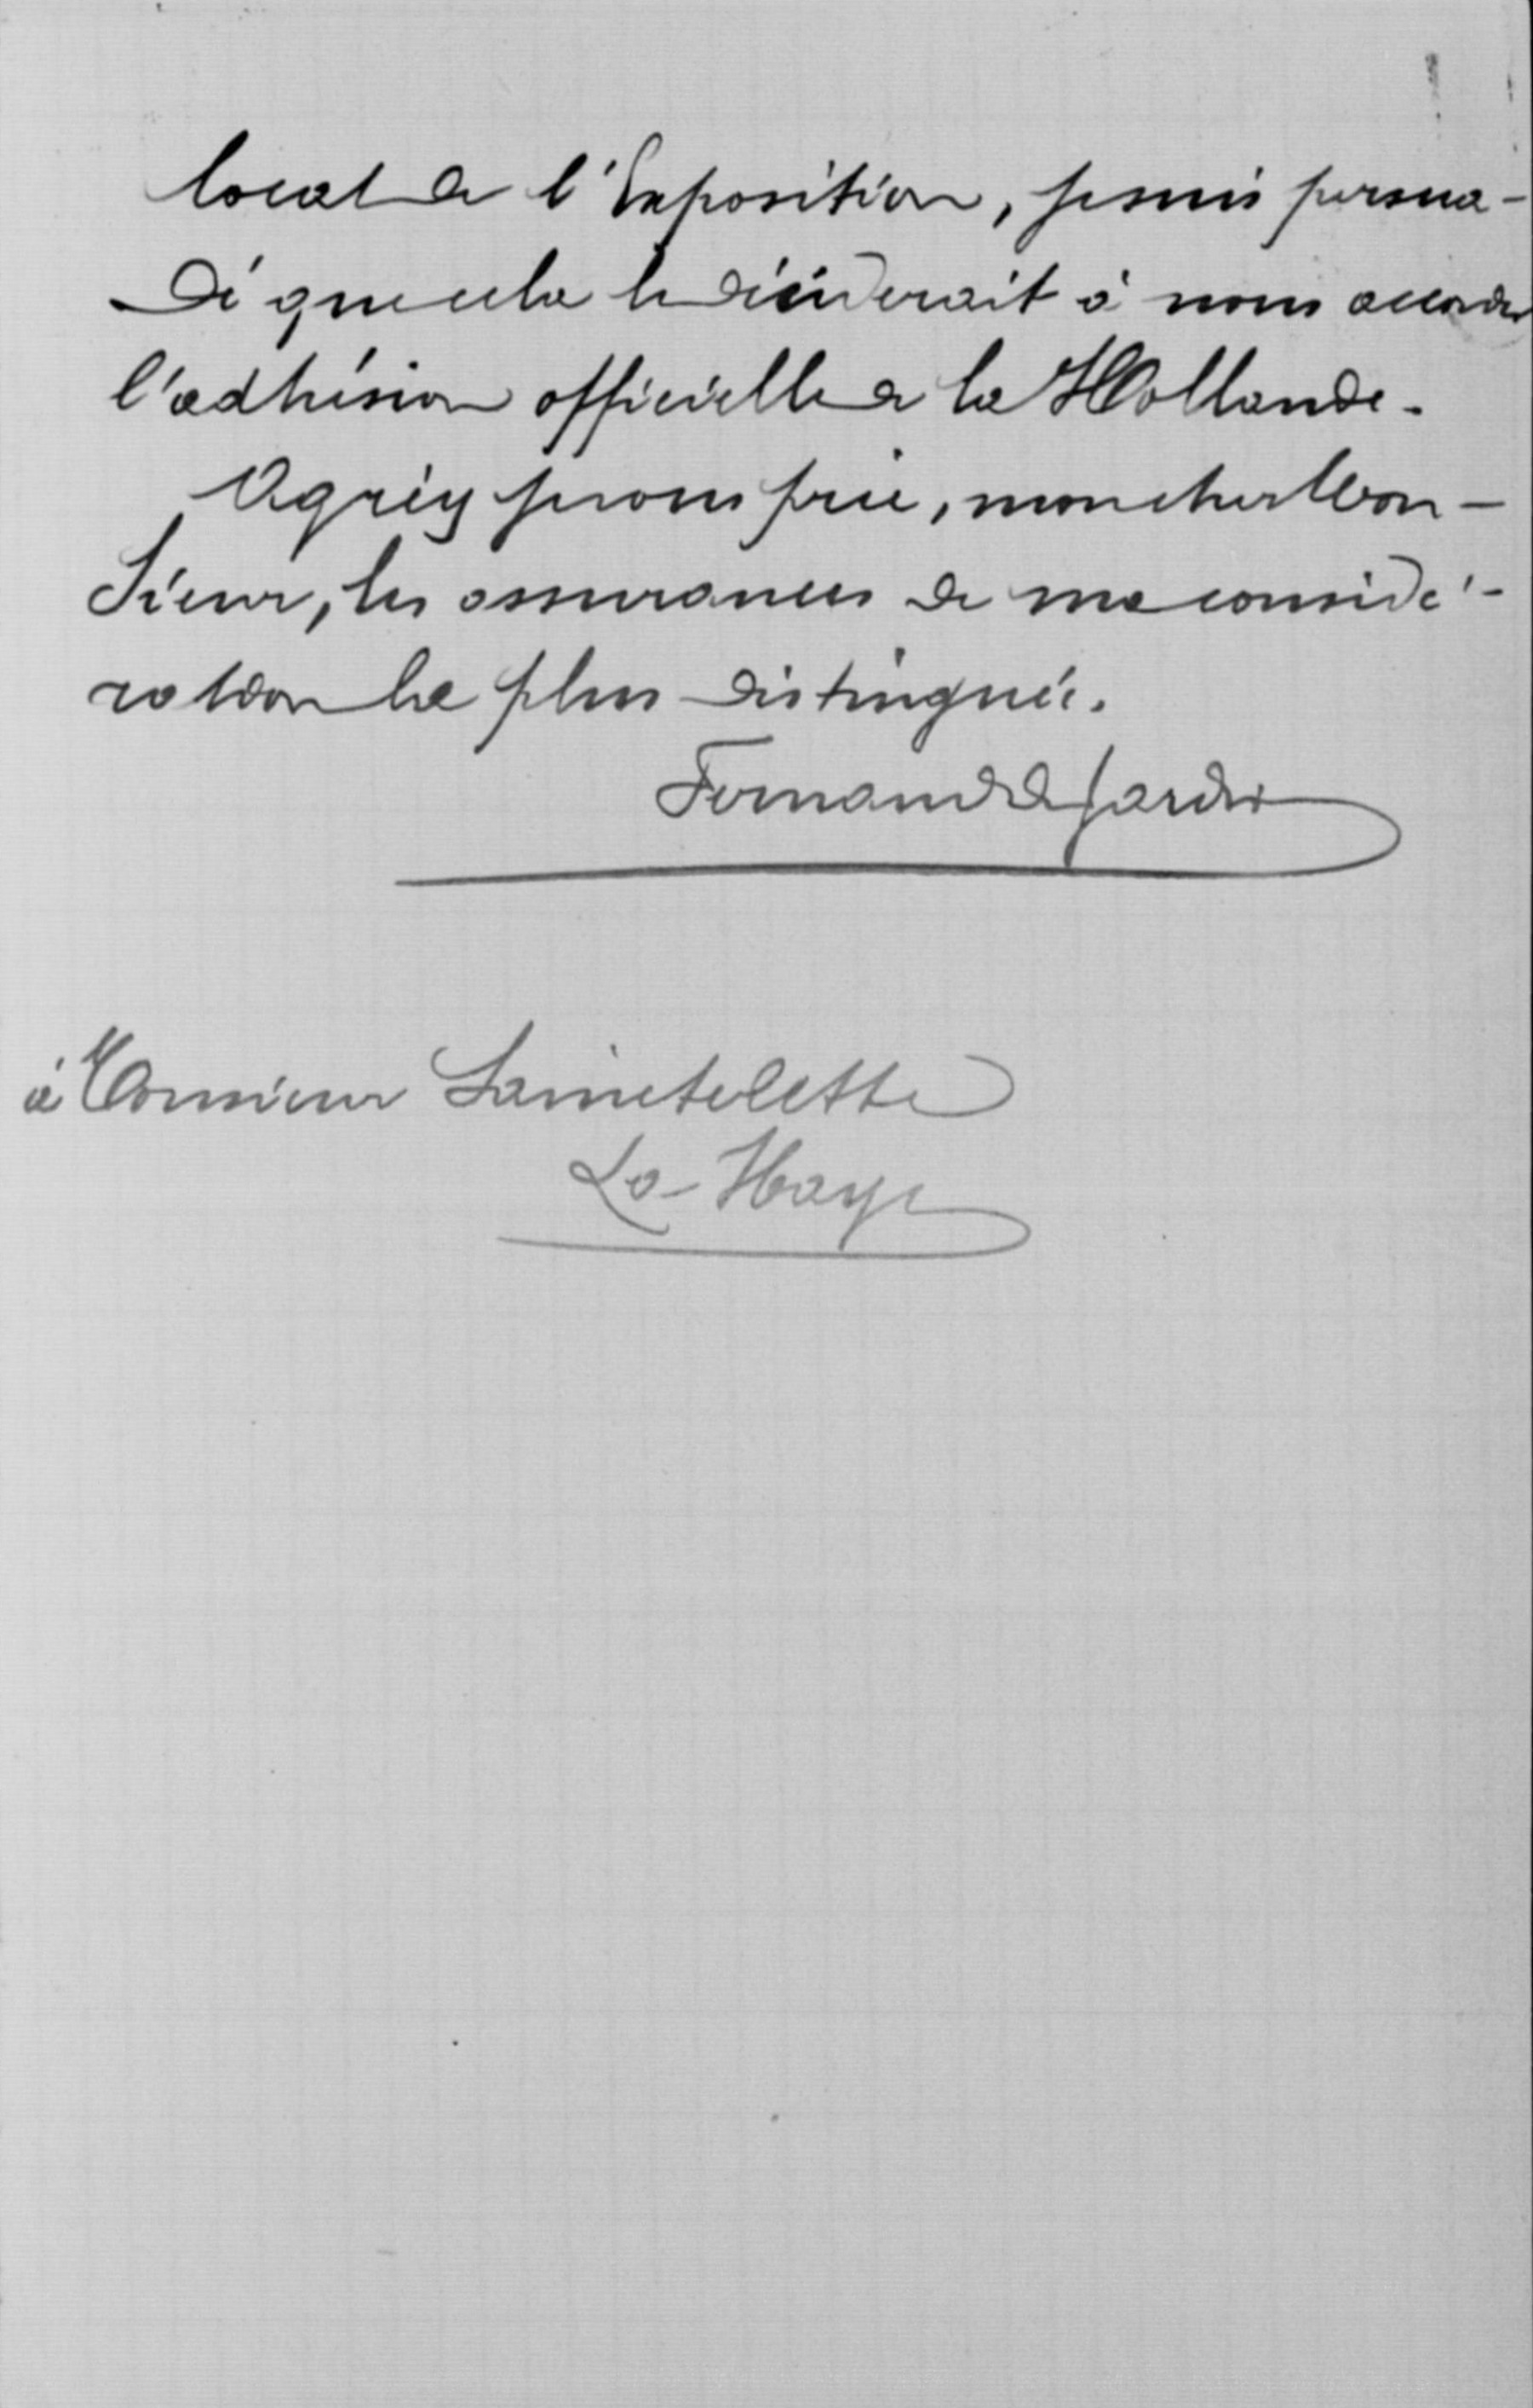 local de l'Exposition, je suis persua-
dé que cela le déciderait à nous accorder
l'adhésion officielle de la Hollande.
Agréez je vous prie, mon cher Mon-
sieur, les assurances de ma considé-
ration la plus distinguée.
Fernand de Jardin
à Monsieur Sainctelette
La-Haye